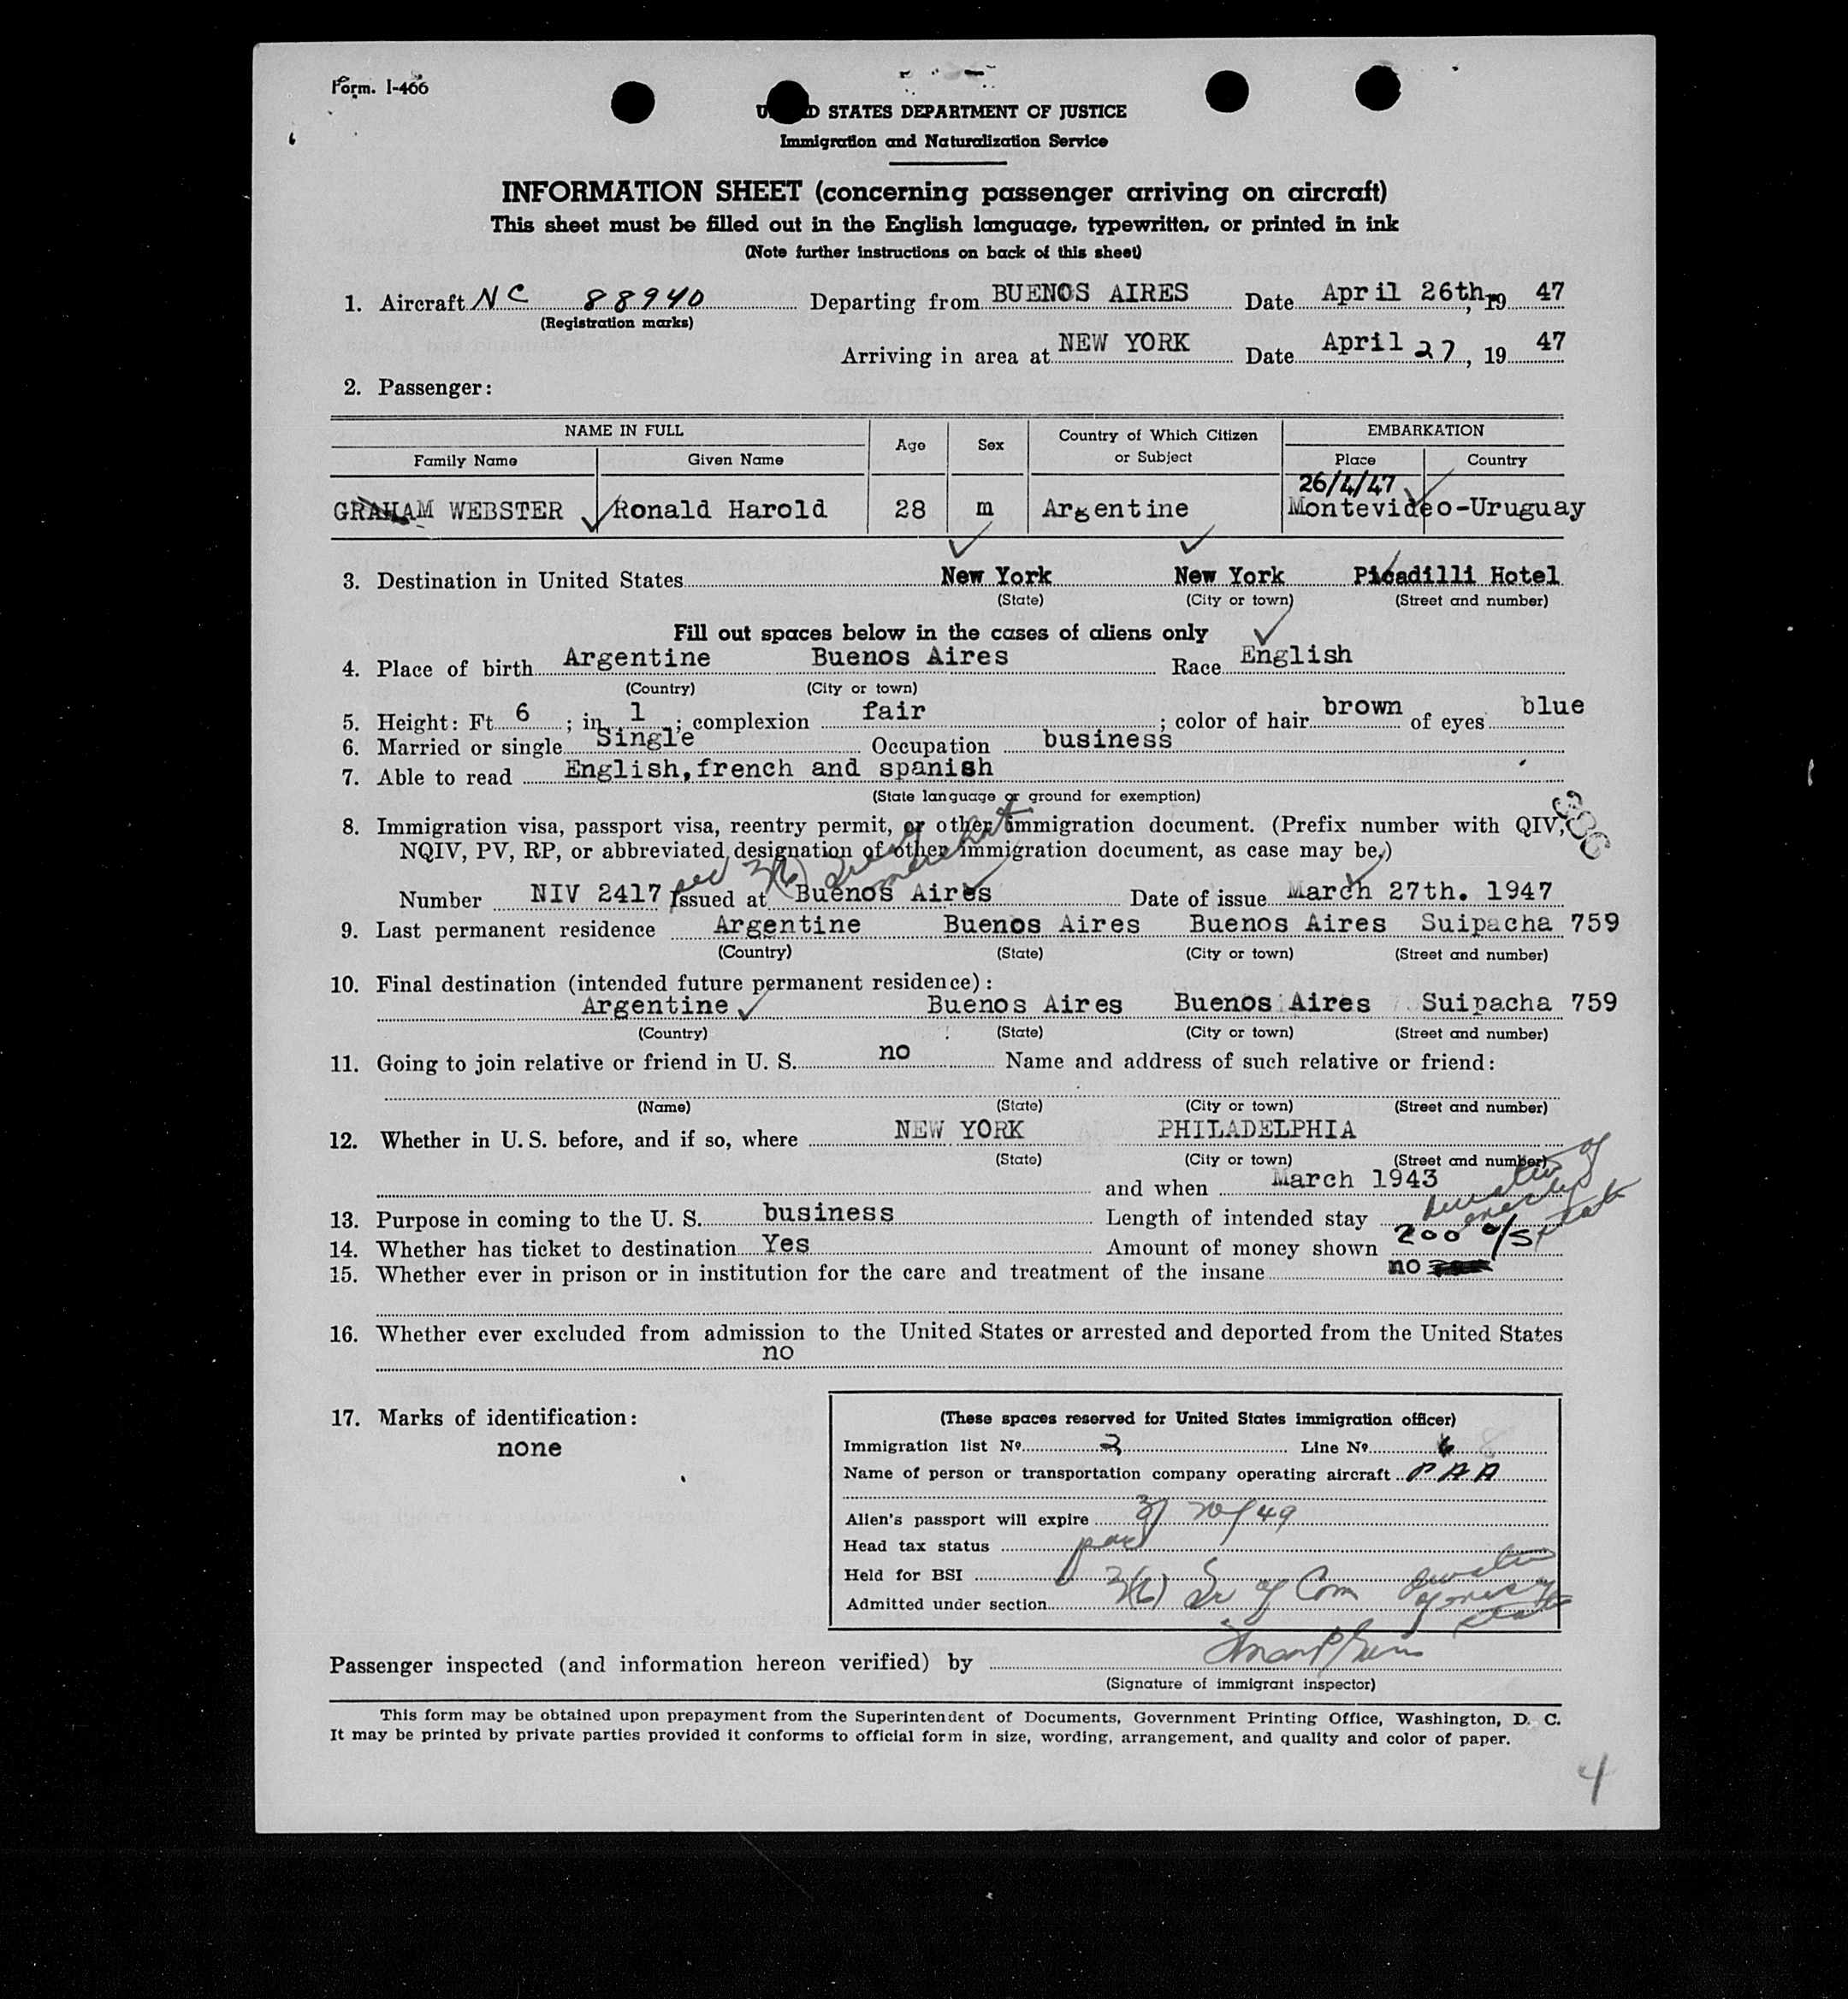 Form. I-466
STATES DEPARTMENT OF JUSTICE
Immigration and Naturalization Service
INFORMATION SHEET (concerning passenger arriving on aircraft)
This sheet must be filled out in the English language, typewritten, or printed in ink
(Note further instructions on back of this sheet)
1. Aircraft NC 88940 Departing from BUENOS AIRES Date April 26th, 19 47
(Registration marks)
Arriving in area at NEW YORK Date April 27, 19 47
2. Passenger:
NAME IN FULL Age Sex Country of Which Citizen or Subject EMBARKATION
Family Name Given Name Place Country
26/4/47
GRAHAM WEBSTER Ronald Harold 28 m Argentine Montevideo-Uruguay
3. Destination in United States New York New York Picadilli Hotel
(State) (City or town) (Street and number)
Fill out spaces below in the cases of aliens only
4. Place of birth Argentine Buenos Aires Race English
(Country) (City or town)
5. Height: Ft. 6 ; in. 1 ; complexion fair ; color of hair brown of eyes blue
6. Married or single Single Occupation business
7. Able to read English,french and spanish
(State language or ground for exemption)
8. Immigration visa, passport visa, reentry permit, or other immigration document. (Prefix number with QIV,
NQIV, PV, RP, or abbreviated designation of other immigration document, as case may be.)
306
sec 3(6) merchant
Number NIV 2417 Issued at Buenos Aires Date of issue March 27th. 1947
9. Last permanent residence Argentine Buenos Aires Buenos Aires Suipacha 759
(Country) (State) (City or town) (Street and number)
10. Final destination (intended future permanent residence):
Argentine Buenos Aires Buenos Aires Suipacha 759
(Country) (State) (City or town) (Street and number)
11. Going to join relative or friend in U. S. no Name and address of such relative or friend:
(Name) (State) (City or town) (Street and number)
12. Whether in U. S. before, and if so, where NEW YORK PHILADELPHIA
(State) (City or town) (Street and number)
and when March 1943
13. Purpose in coming to the U. S. business Length of intended stay duration of
14. Whether has ticket to destination Yes Amount of money shown 200
15. Whether ever in prison or in institution for the care and treatment of the insane no
16. Whether ever excluded from admission to the United States or arrested and deported from the United States
no
17. Marks of identification:
none
(These spaces reserved for United States immigration officer)
Immigration list No 2 Line No 6
Name of person or transportation company operating aircraft PAA
Alien's passport will expire 3/20/49
Head tax status paid
Held for BSI
Admitted under section 3(6) of Com duration
Passenger inspected (and information hereon verified) by
(Signature of immigrant inspector)
This form may be obtained upon prepayment from the Superintendent of Documents, Government Printing Office, Washington, D. C.
It may be printed by private parties provided it conforms to official form in size, wording, arrangement, and quality and color of paper.
4